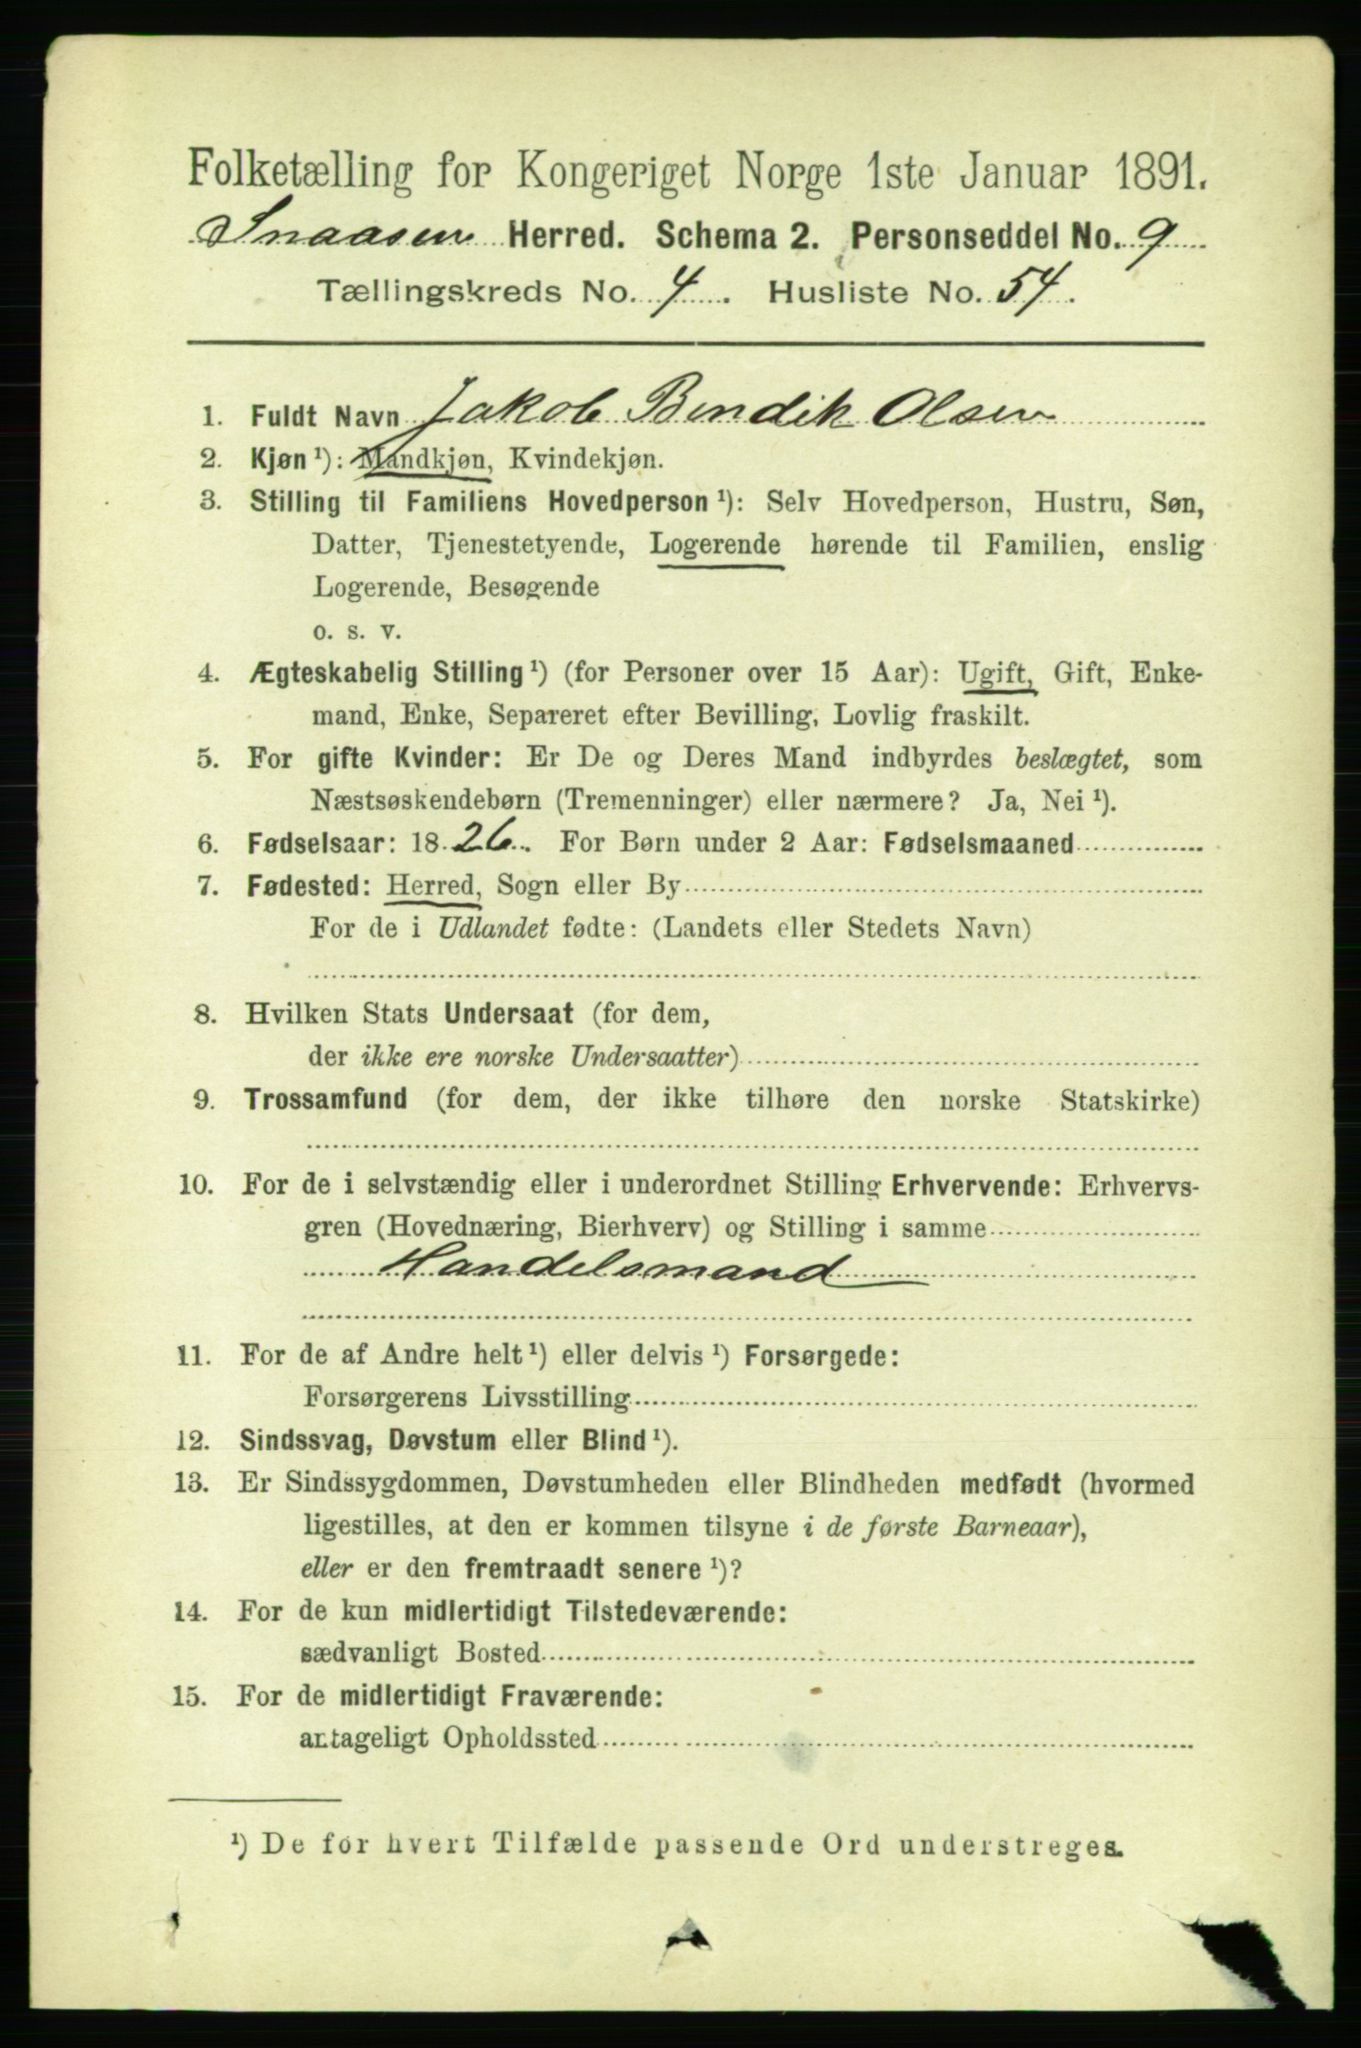 Folketælling for Kongeriget Norge 1ste Januar 1891.
Snaasen Herred. Schema 2. Personseddel No. 9
Tællingskreds No. 4. Husliste No. 54.
1. Fuldt Navn Jakob Bendik Olsen
2. Kjøn ¹): Mandkjøn, Kvindekjøn.
3. Stilling til Familiens Hovedperson ¹): Selv Hovedperson, Hustru, Søn,
Datter, Tjenestetyende, Logerende hørende til Familien, enslig
Logerende, Besøgende
o. s. v.
4. Ægteskabelig Stilling ¹) (for Personer over 15 Aar): Ugift, Gift, Enke-
mand, Enke, Separeret efter Bevilling, Lovlig fraskilt.
5. For gifte Kvinder: Er De og Deres Mand indbyrdes beslægtet, som
Næstsøskendebørn (Tremenninger) eller nærmere? Ja, Nei ¹).
6. Fødselsaar: 1826. For Børn under 2 Aar: Fødselsmaaned
7. Fødested: Herred, Sogn eller By
For de i Udlandet fødte: (Landets eller Stedets Navn)
8. Hvilken Stats Undersaat (for dem,
der ikke ere norske Undersaatter)
9. Trossamfund (for dem, der ikke tilhøre den norske Statskirke)
10. For de i selvstændig eller i underordnet Stilling Erhvervende: Erhvervs-
gren (Hovednæring, Bierhverv) og Stilling i samme
Handelsmand
11. For de af Andre helt ¹) eller delvis ¹) Forsørgede:
Forsørgerens Livsstilling
12. Sindssvag, Døvstum eller Blind ¹).
13. Er Sindssygdommen, Døvstumheden eller Blindheden medfødt (hvormed
ligestilles, at den er kommen tilsyne i de første Barneaar),
eller er den fremtraadt senere ¹)?
14. For de kun midlertidigt Tilstedeværende:
sædvanligt Bosted
15. For de midlertidigt Fraværende:
antageligt Opholdssted
¹) De for hvert Tilfælde passende Ord understreges.